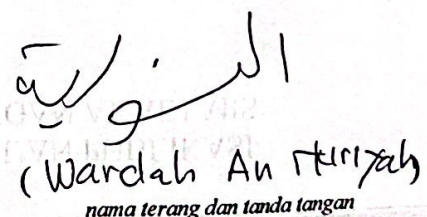 النورية
(Wardah An Nuriyah)
nama terang dan tanda tangan